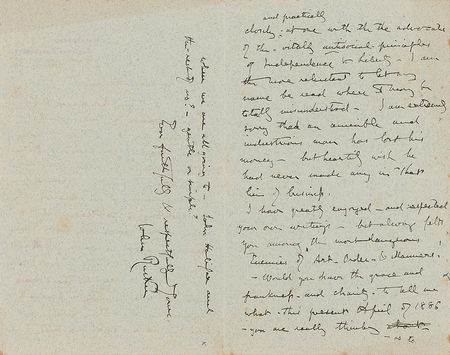 and practically
closely - at one with the the advocate
of the - vitally antisocial - principles
of Independence & Liberty - I am
the more reluctant to let my
name be read where I may be
totally misunderstood - I am extremely
sorry that an amiable and
industrious man has lost his
money - but heartily wish he
had never made any in that
line of business.
I have greatly enjoyed - and respected
your own writings - but always felt
you among the most dangerous
Enemies of Art - Order - & Manners!
- Would you have the grace and
frankness - and charity - to tell me
what - this present April of 1886
- you are really thinking
- as to
where we are all going to - and
the rest of us? - gentle or simple?
Ever faithfully & respectfully Yours
John Ruskin